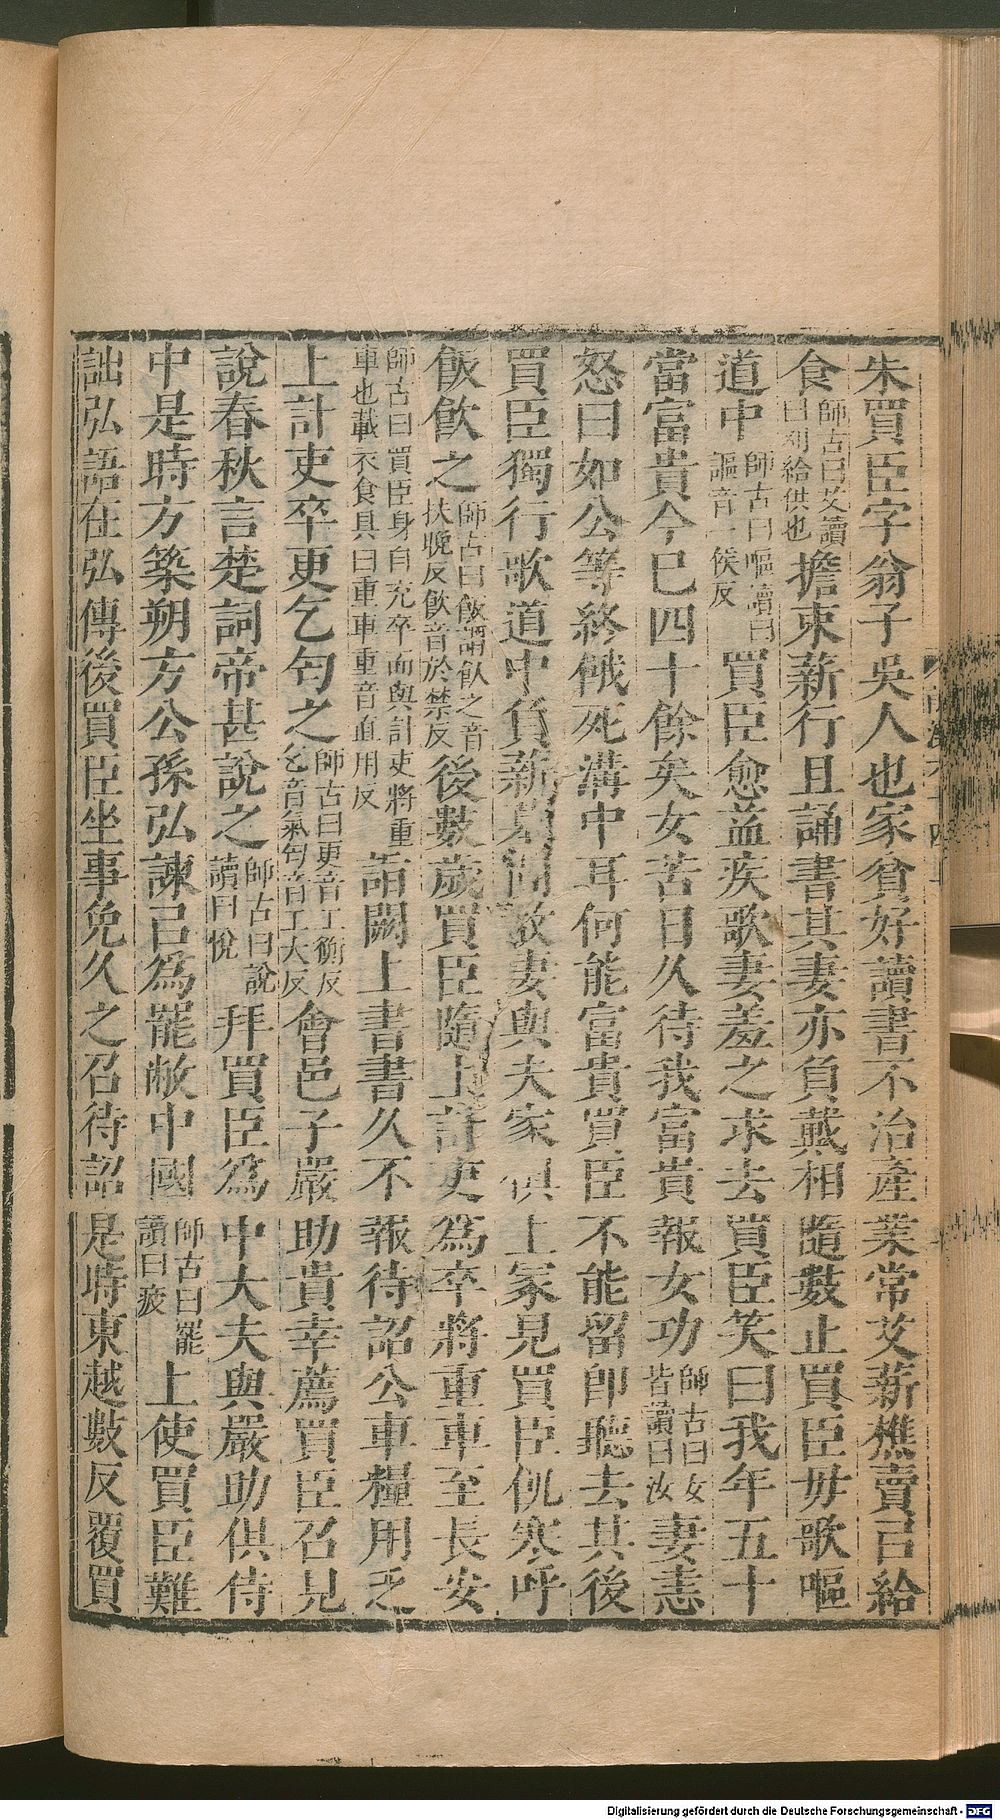 朱買臣字翁子吳人也家貧好讀書不治產業常艾薪樵賣㠯給
食師古曰艾讀曰刈給供也擔束薪行且誦書其妻亦負戴相隨數止買臣毋歌嘔
道中師古曰嘔讀曰謳音一侯反買臣愈益疾歌妻羞之求去買臣笑曰我年五十
當富貴今已四十餘矣女苦日久待我富貴報女功師古曰女皆讀曰汝妻恚
怒曰如公等終餓死溝中耳何能富貴買臣不能留卽聽去其後
買臣獨行歌道中負薪墓間故妻與夫家俱上冢見買臣飢寒呼
飯飲之師古曰飯謂飤之音扶晚反飲音於禁反後數歲買臣隨上計吏為卒將重車至長安
師古曰買臣身自充卒而與計吏將重車也載衣食具曰重車重音直用反詣闕上書書久不報待詔公車糧用乏
上計吏卒更乞匄之師古曰更音工衡反乞音氣匄音工大反會邑子嚴助貴幸薦買臣召見
說春秋言楚詞帝甚說之師古曰說讀曰悅拜買臣為中大夫與嚴助俱侍
中是時方築朔方公孫弘諫㠯為罷敝中國師古曰罷讀曰疲上使買臣難
詘弘語在弘傳後買臣坐事免久之召待詔是時東越數反覆買
Digitalisierung gefördert durch die Deutsche Forschungsgemeinschaft - DFG